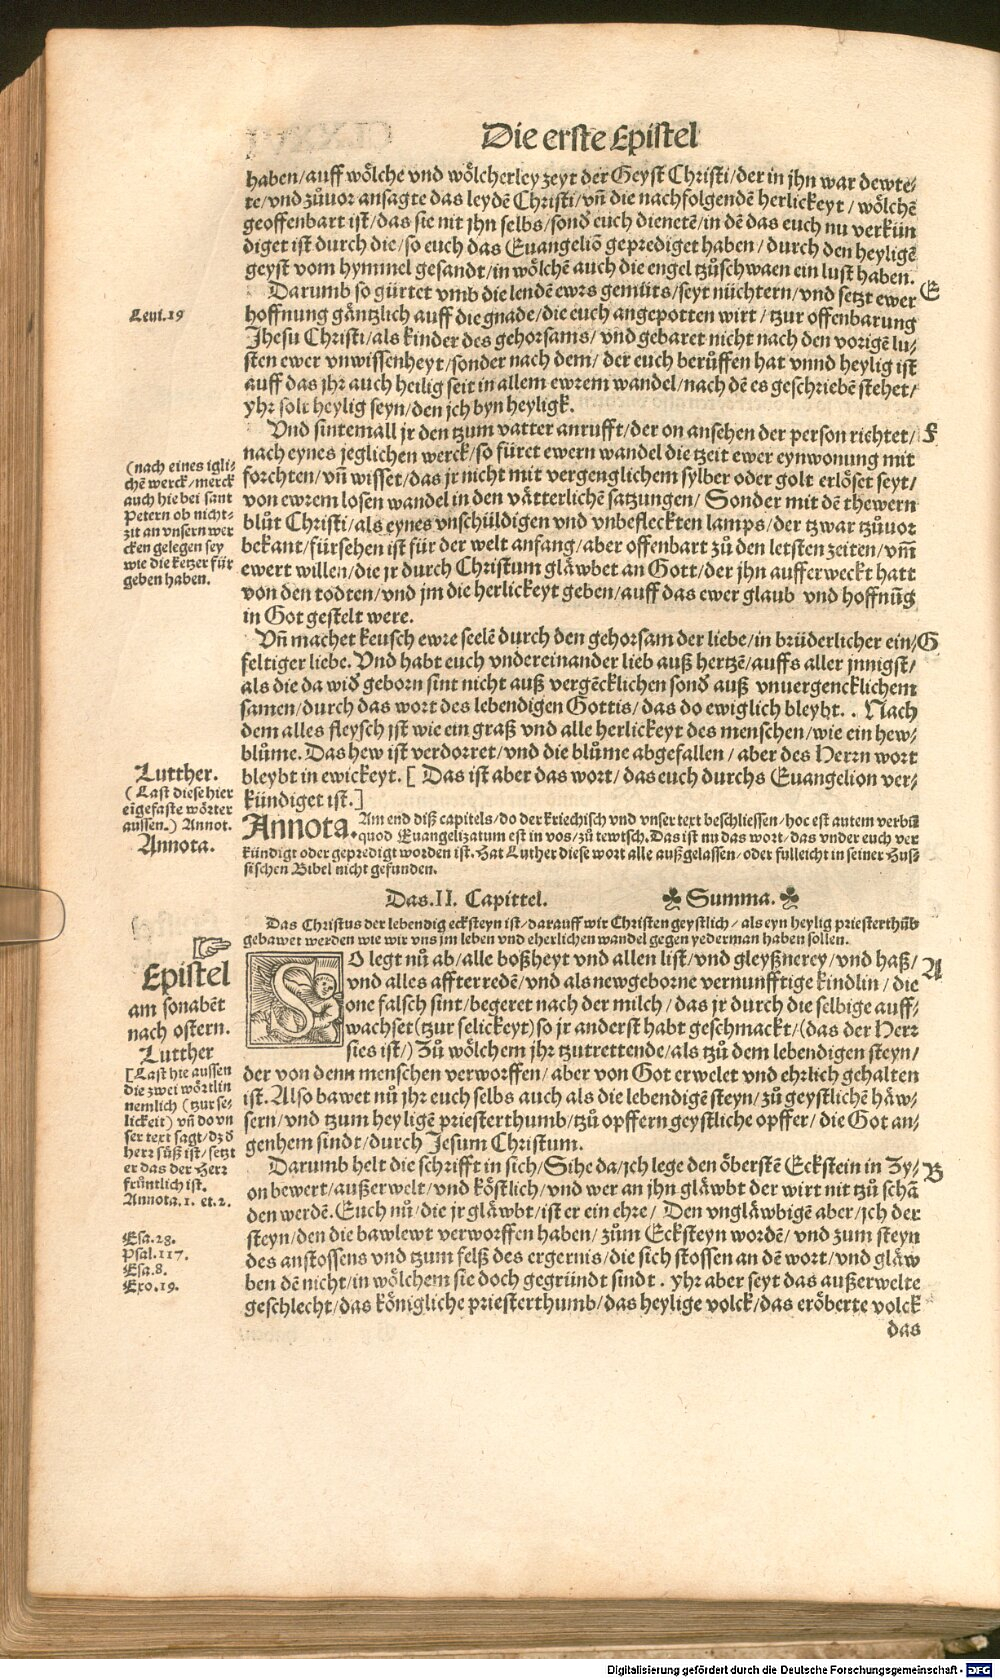 Die erste Epistel
haben/auff wölche vnd wölcherley zeyt der Geyst Christi/der in jhn war dewte-
te/vnd zůuor ansagte das leydē Christi/vn̄ die nachfolgendē herlickeyt/wölchē
geoffenbart ist/das sie nit jhn selbs/sond̄ euch dienetē/in dē das euch nu verkün
diget ist durch die/so euch das Euangeliō geprediget haben/durch den heyligē
geyst vom hymmel gesandt/in wölchē auch die engel tzůschwaen ein lust haben.
Darumb so gürtet vmb die lendē ewrs gemüts/seyt nüchtern/vnd setzt ewer E
Leui.19
hoffnung gäntzlich auff die gnade/die euch angepotten wirt/tzur offenbarung
Jhesu Christi/als kinder des gehorsams/vnd gebaret nicht nach den vorigē lu-
sten ewer vnwissenheyt/sonder nach dem/der euch berüffen hat vnnd heylig ist
auff das jhr auch heilig seit in allem ewrem wandel/nach dē es geschriebē stehet/
yhr solt heylig seyn/den jch byn heyligk.
Vnd sintemall jr den tzum vatter anrufft/der on ansehen der person richtet/ F
nach eynes jeglichen werck/so füret ewern wandel die tzeit ewer eynwonung mit
forchten/vn̄ wisset/das jr nicht mit vergenglichem sylber oder golt erlöset seyt/
von ewrem losen wandel in den vätterlichē satzungen/Sonder mit dē thewern
blůt Christi/als eynes vnschüldigen vnd vnbefleckten lamps/der tzwar tzůuor
bekant/fürsehen ist für der welt anfang/aber offenbart zů den letsten zeiten/vm̄
ewert willen/die jr durch Christum gläwbet an Gott/der jhn aufferweckt hatt
von den todten/vnd jm die herlickeyt geben/auff das ewer glaub vnd hoffnūg
in Got gestelt were.
(nach eines igli-
chē werck/merck
auch hie bei sant
Petern ob nicht-
zit an vnsern wer
cken gelegen sey
wie die ketzer für
geben haben.
Vn̄ machet keusch ewre seelē durch den gehorsam der liebe/in brüderlicher ein/ G
feltiger liebe. Vnd habt euch vndereinander lieb auß hertzē/auffs aller jnnigst/
als die da wid̄ geborn sint nicht auß vergēcklichen sond̄ auß vnuergencklichem
samen/durch das wort des lebendigen Gottis/das do ewiglich bleybt. . Nach
dem alles fleysch jst wie ein graß vnd alle herlickeyt des menschen/wie ein hew-
blůme. Das hew ist verdorret/vnd die blůme abgefallen/aber des Herrn wort
bleybt in ewickeyt. [ Das ist aber das wort/das euch durchs Euangelion ver-
kündiget ist.]
Lutther.
(Last diese hier
eīgefaste wörter
aussen.) Annot.
Annota.
Annota. Am end diß capitels/do der kriechisch vnd vnser text beschliessen/hoc est autem verbū
quod Euangelizatum est in vos/zů tewtsch. Das ist nu das wort/das vnder euch ver
kündigt oder gepredigt worden ist. Hat Luther diese wort alle außgelassen/oder fulleicht in seiner Hus-
sischen Bibel nicht gefunden.
Das.II. Capittel. ♣ Summa. ♣
Das Christus der lebendig ecksteyn ist/darauff wir Christen geystlich/als eyn heylig priesterthūb
gebawet werden wie wir vns jm leben vnd eherlichen wandel gegen yederman haben sollen.
SO legt nů ab/alle boßheyt vnd allen list/vnd gleyßnerey/vnd haß/ A
vnd alles affterredē/vnd als newgeborne vernunfftige kindlin/die
one falsch sint/begeret nach der milch/das jr durch die selbige auff-
wachset(tzur selickeyt)so jr anderst habt geschmackt/(das der Herr
sies ist/) Zů wölchem jhr tzutrettende/als tzů dem lebendigen steyn/
der von denn menschen verworffen/aber von Got erwelet vnd ehrlich gehalten
ist. Also bawet nů jhr euch selbs auch als die lebendigē steyn/zů geystlichē häw-
sern/vnd tzum heyligē priesterthumb/tzů opffern geystliche opffer/die Got an-
genhem sindt/durch Jesum Christum.
Epistel
am sonabēt
nach ostern.
Lutther
[Last hie aussen
die zwei wörtlin
nemlich (tzur se-
lickeit) vn̄ do vn
ser text sagt/dz d̄
herr süß ist/setzt
er das der Herr
früntlich ist.
Annota.1. et.2.
Darumb helt die schrifft in sich/Sihe da/jch lege den öberstē Eckstein in Zy- B
on bewert/außerwelt/vnd köstlich/vnd wer an jhn gläwbt der wirt nit tzů schā
den werdē. Euch nů/die jr gläwbt/ist er ein ehre/Den vngläwbigē aber/jch der
steyn/den die bawlewt verworffen haben/zům Ecksteyn wordē/vnd zum steyn
des anstossens vnd tzum felß des ergernis/die sich stossen an dē wort/vnd gläw
ben dē nicht/in wölchem sie doch gegründt sindt. yhr aber seyt das außerwelte
geschlecht/das königliche priesterthumb/das heylige volck/das eröberte volck
das
Esa.28.
Psal.117.
Esa.8.
Exo.19.
Digitalisierung gefördert durch die Deutsche Forschungsgemeinschaft - DFG